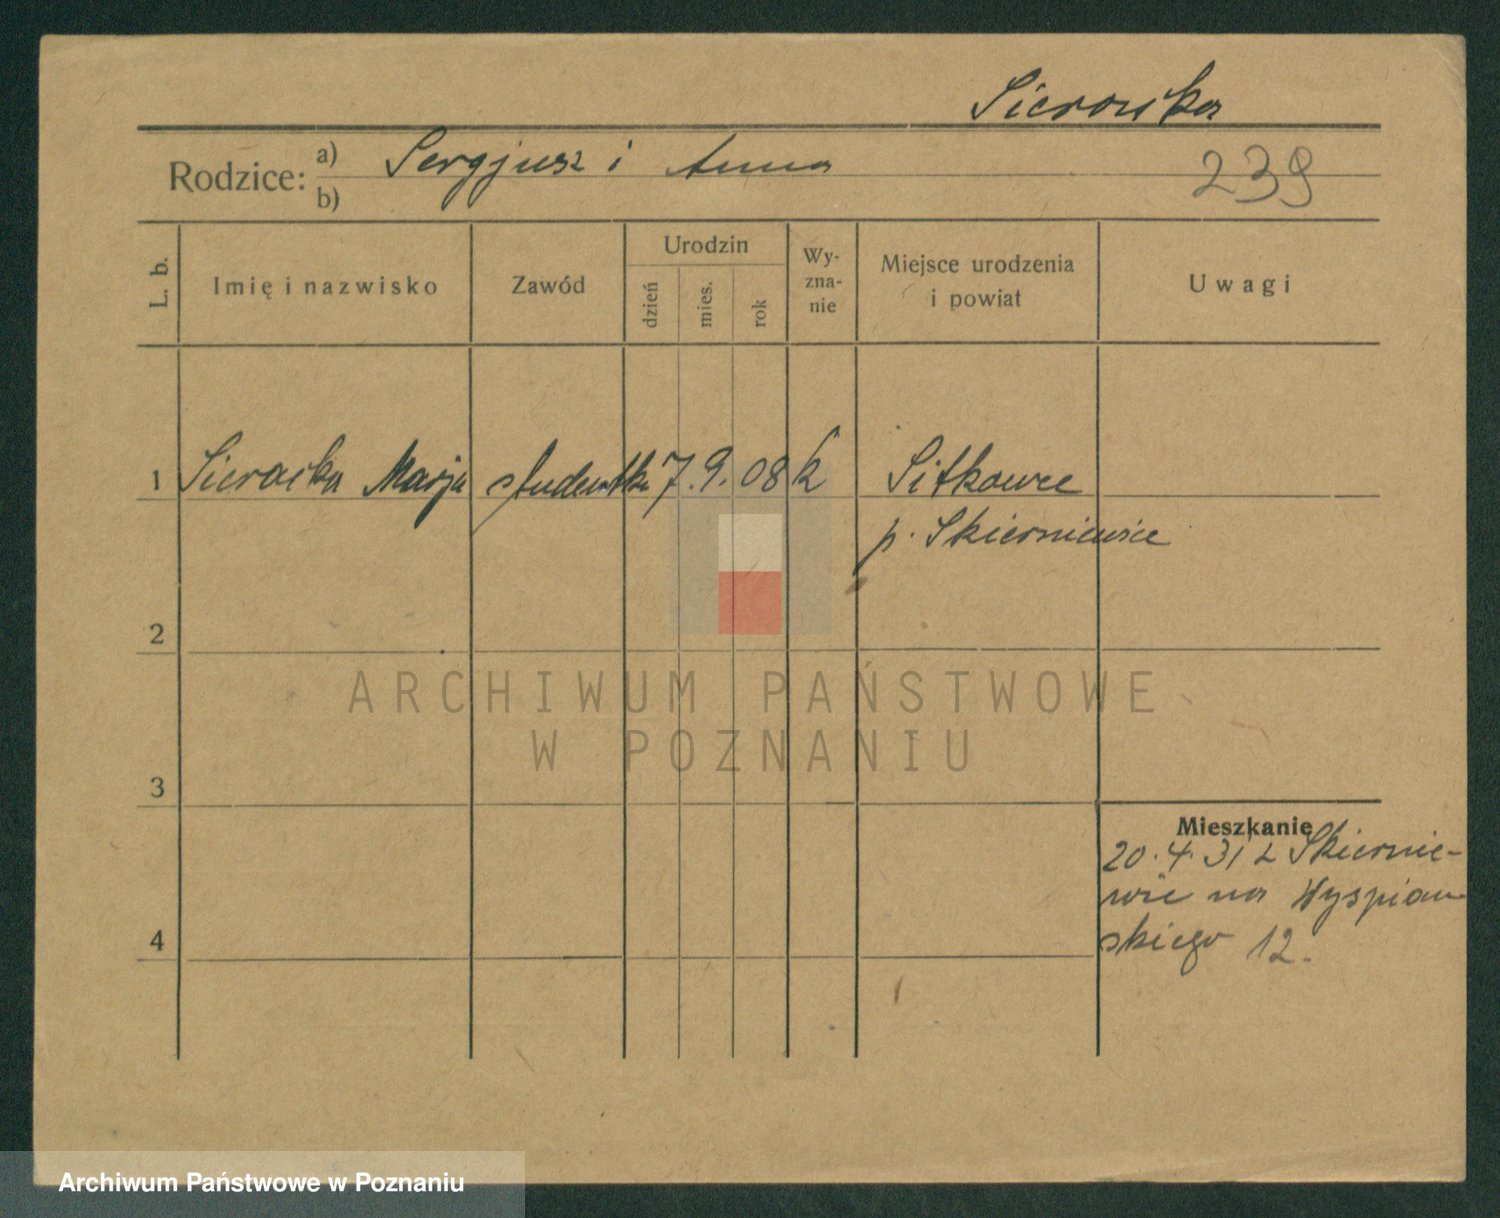 Sieroska
Rodzice: a) Sergjusz i Anna
b)
239
L. b.
Imię i nazwisko
Zawód
Urodzin
dzień
mies.
rok
Wy-
zna-
nie
Miejsce urodzenia
i powiat
Uwagi
1 Sieroska Marja studentka 7. 9. 08 k Sitkowce
p. Skierniewice
2
3
4
Mieszkanie
20. 4. 31 z Skiernie-
wic na Wyspiań-
skiego 12.
ARCHIWUM PAŃSTWOWE
W POZNANIU
Archiwum Państwowe w Poznaniu